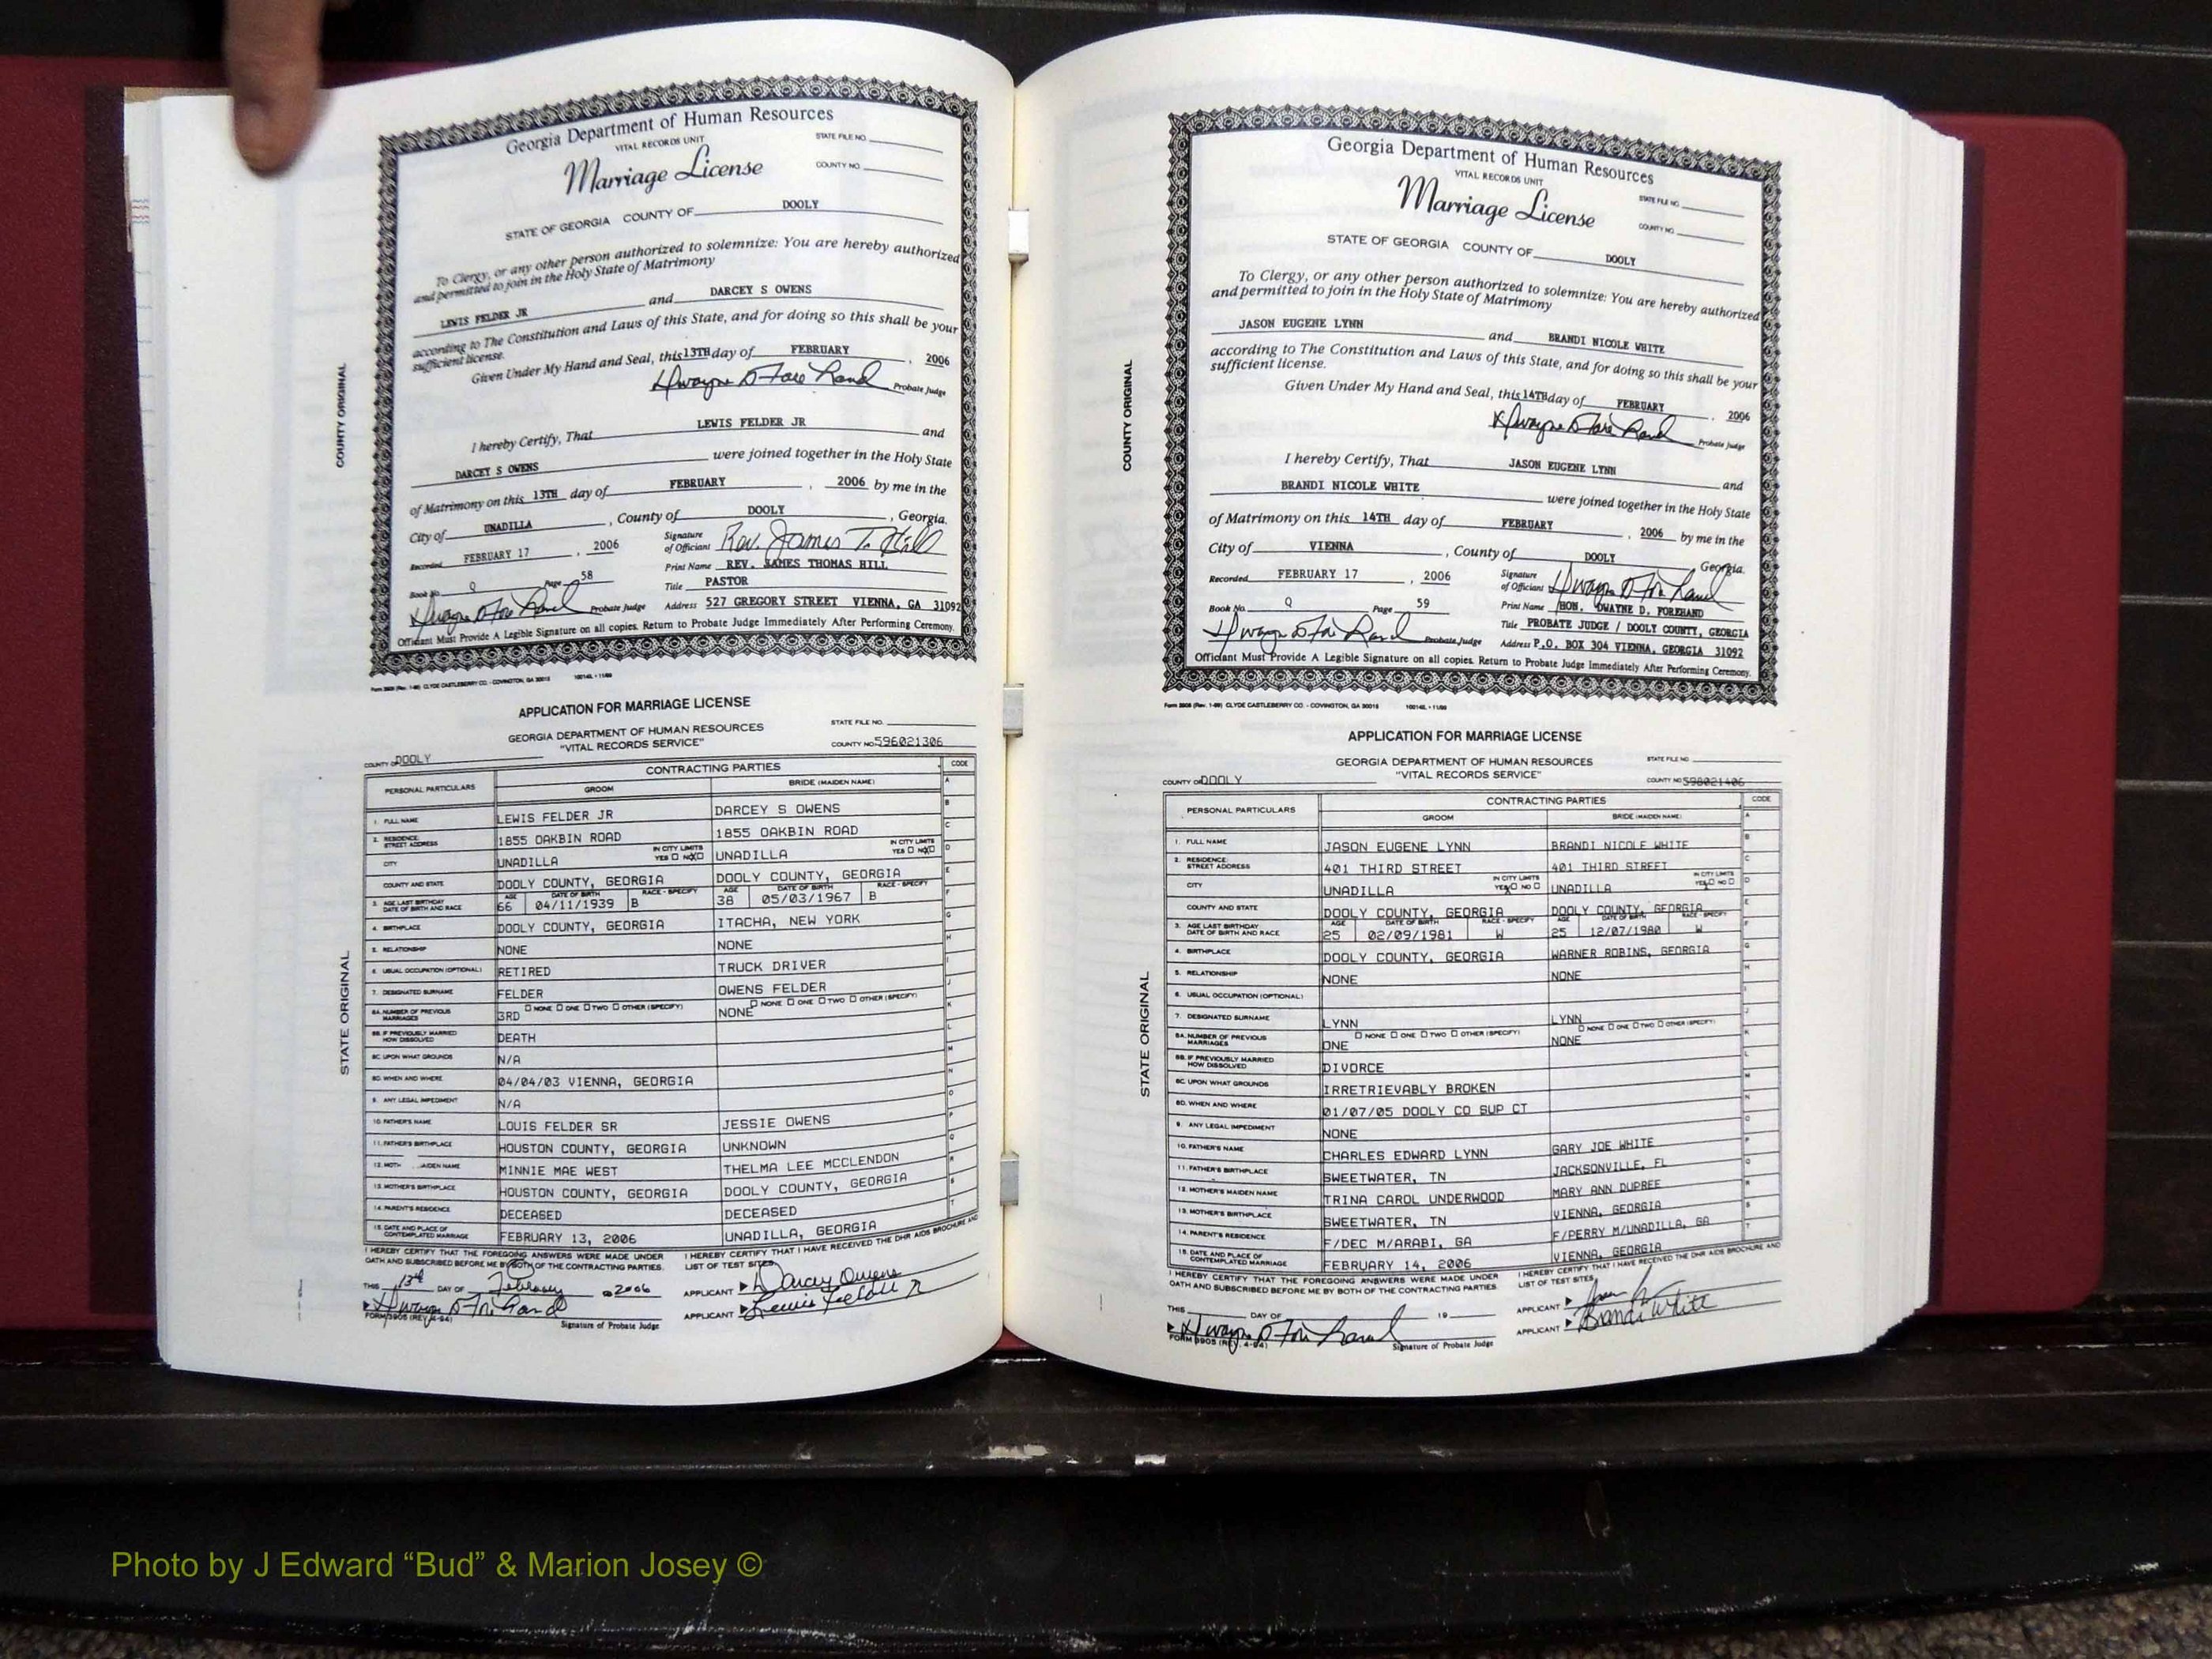 Georgia Department of Human Resources
VITAL RECORDS UNIT
STATE FILE NO.
Marriage License
COUNTY NO.
STATE OF GEORGIA COUNTY OF DOOLY
To Clergy, or any other person authorized to solemnize: You are hereby authorized
and permitted to join in the Holy State of Matrimony
LEWIS FELDER JR and DARCEY S OWENS
according to The Constitution and Laws of this State, and for doing so this shall be your
sufficient license.
Given Under My Hand and Seal, this 13TH day of FEBRUARY, 2006
Probate Judge
I hereby Certify, That LEWIS FELDER JR and
DARCEY S OWENS were joined together in the Holy State
of Matrimony on this 13TH day of FEBRUARY, 2006 by me in the
City of UNADILLA, County of DOOLY, Georgia.
Recorded FEBRUARY 17, 2006 Signature of Officiant Rev. James T. Hill
Print Name REV. JAMES THOMAS HILL
Book No. Q Page 58 Title PASTOR
Probate Judge Address 527 GREGORY STREET VIENNA, GA 31092
Officiant Must Provide A Legible Signature on all copies. Return to Probate Judge Immediately After Performing Ceremony.
Form 3908 (Rev. 1-99) CLYDE CASTLEBERRY CO. - COVINGTON, GA 30015
COUNTY ORIGINAL
APPLICATION FOR MARRIAGE LICENSE
GEORGIA DEPARTMENT OF HUMAN RESOURCES
"VITAL RECORDS SERVICE"
STATE FILE NO.
COUNTY NO 596021306
COUNTY OF DOOLY
PERSONAL PARTICULARS
CONTRACTING PARTIES
CODE
GROOM
BRIDE (MAIDEN NAME)
1. FULL NAME LEWIS FELDER JR DARCEY S OWENS
2. RESIDENCE: STREET ADDRESS 1855 OAKBIN ROAD 1855 OAKBIN ROAD
CITY UNADILLA IN CITY LIMITS YES NO UNADILLA IN CITY LIMITS YES NO
COUNTY AND STATE DOOLY COUNTY, GEORGIA DOOLY COUNTY, GEORGIA
3. AGE LAST BIRTHDAY DATE OF BIRTH AND RACE AGE 66 DATE OF BIRTH 04/11/1939 RACE - SPECIFY B AGE 38 DATE OF BIRTH 05/03/1967 RACE - SPECIFY B
4. BIRTHPLACE DOOLY COUNTY, GEORGIA ITACHA, NEW YORK
5. RELATIONSHIP NONE NONE
6. USUAL OCCUPATION (OPTIONAL) RETIRED TRUCK DRIVER
7. DESIGNATED SURNAME FELDER OWENS FELDER
8A. NUMBER OF PREVIOUS MARRIAGES 3RD NONE ONE TWO OTHER (SPECIFY) NONE NONE ONE TWO OTHER (SPECIFY)
8B. IF PREVIOUSLY MARRIED HOW DISSOLVED DEATH
8C. UPON WHAT GROUNDS N/A
8D. WHEN AND WHERE 04/04/03 VIENNA, GEORGIA
9. ANY LEGAL IMPEDIMENT N/A
10. FATHER'S NAME LOUIS FELDER SR JESSIE OWENS
11. FATHER'S BIRTHPLACE HOUSTON COUNTY, GEORGIA UNKNOWN
12. MOTH AIDEN NAME MINNIE MAE WEST THELMA LEE MCCLENDON
13. MOTHER'S BIRTHPLACE HOUSTON COUNTY, GEORGIA DOOLY COUNTY, GEORGIA
14. PARENT'S RESIDENCE DECEASED DECEASED
15. DATE AND PLACE OF CONTEMPLATED MARRIAGE FEBRUARY 13, 2006 UNADILLA, GEORGIA
I HEREBY CERTIFY THAT THE FOREGOING ANSWERS WERE MADE UNDER
OATH AND SUBSCRIBED BEFORE ME BY BOTH OF THE CONTRACTING PARTIES.
I HEREBY CERTIFY THAT I HAVE RECEIVED THE DHR AIDS BROCHURE AND
LIST OF TEST SITES.
THIS 13th DAY OF February 2006
APPLICANT Darcey Owens
APPLICANT Lewis Felder Jr
FORM 3905 (REV. 4-94) Signature of Probate Judge
STATE ORIGINAL
Georgia Department of Human Resources
VITAL RECORDS UNIT
STATE FILE NO.
Marriage License
COUNTY NO.
STATE OF GEORGIA COUNTY OF DOOLY
To Clergy, or any other person authorized to solemnize: You are hereby authorized
and permitted to join in the Holy State of Matrimony
JASON EUGENE LYNN and BRANDI NICOLE WHITE
according to The Constitution and Laws of this State, and for doing so this shall be your
sufficient license.
Given Under My Hand and Seal, this 14TH day of FEBRUARY, 2006
Probate Judge
I hereby Certify, That JASON EUGENE LYNN and
BRANDI NICOLE WHITE were joined together in the Holy State
of Matrimony on this 14TH day of FEBRUARY, 2006 by me in the
City of VIENNA, County of DOOLY Georgia.
Recorded FEBRUARY 17, 2006 Signature of Officiant
Book No. Q Page 59 Print Name HON. DWAYNE D. FOREHAND
Title PROBATE JUDGE / DOOLY COUNTY, GEORGIA
Probate Judge Address P.O. BOX 304 VIENNA, GEORGIA 31092
Officiant Must Provide A Legible Signature on all copies. Return to Probate Judge Immediately After Performing Ceremony.
Form 3908 (Rev. 1-99) CLYDE CASTLEBERRY CO. - COVINGTON, GA 30015
COUNTY ORIGINAL
APPLICATION FOR MARRIAGE LICENSE
GEORGIA DEPARTMENT OF HUMAN RESOURCES
"VITAL RECORDS SERVICE"
STATE FILE NO.
COUNTY NO 598021406
COUNTY OF DOOLY
PERSONAL PARTICULARS
CONTRACTING PARTIES
CODE
GROOM
BRIDE (MAIDEN NAME)
1. FULL NAME JASON EUGENE LYNN BRANDI NICOLE WHITE
2. RESIDENCE: STREET ADDRESS 401 THIRD STREET 401 THIRD STREET
CITY UNADILLA IN CITY LIMITS YES NO UNADILLA IN CITY LIMITS YES NO
COUNTY AND STATE DOOLY COUNTY, GEORGIA DOOLY COUNTY, GEORGIA
3. AGE LAST BIRTHDAY DATE OF BIRTH AND RACE AGE 25 DATE OF BIRTH 02/09/1981 RACE - SPECIFY W AGE 25 DATE OF BIRTH 12/07/1980 RACE - SPECIFY W
4. BIRTHPLACE DOOLY COUNTY, GEORGIA WARNER ROBINS, GEORGIA
5. RELATIONSHIP NONE NONE
6. USUAL OCCUPATION (OPTIONAL)
7. DESIGNATED SURNAME LYNN LYNN
8A. NUMBER OF PREVIOUS MARRIAGES ONE NONE ONE TWO OTHER (SPECIFY) NONE NONE ONE TWO OTHER (SPECIFY)
8B. IF PREVIOUSLY MARRIED HOW DISSOLVED DIVORCE
8C. UPON WHAT GROUNDS IRRETRIEVABLY BROKEN
8D. WHEN AND WHERE 01/07/05 DOOLY CO SUP CT
9. ANY LEGAL IMPEDIMENT NONE
10. FATHER'S NAME CHARLES EDWARD LYNN GARY JOE WHITE
11. FATHER'S BIRTHPLACE SWEETWATER, TN JACKSONVILLE, FL
12. MOTHER'S MAIDEN NAME TRINA CAROL UNDERWOOD MARY ANN DUPREE
13. MOTHER'S BIRTHPLACE SWEETWATER, TN VIENNA, GEORGIA
14. PARENT'S RESIDENCE F/DEC M/ARABI, GA F/PERRY M/UNADILLA, GA
15. DATE AND PLACE OF CONTEMPLATED MARRIAGE FEBRUARY 14, 2006 VIENNA, GEORGIA
I HEREBY CERTIFY THAT THE FOREGOING ANSWERS WERE MADE UNDER
OATH AND SUBSCRIBED BEFORE ME BY BOTH OF THE CONTRACTING PARTIES.
I HEREBY CERTIFY THAT I HAVE RECEIVED THE DHR AIDS BROCHURE AND
LIST OF TEST SITES.
THIS DAY OF 19
APPLICANT
APPLICANT Brandi White
FORM 3905 (REV. 4-94) Signature of Probate Judge
STATE ORIGINAL
Photo by J Edward “Bud” & Marion Josey ©